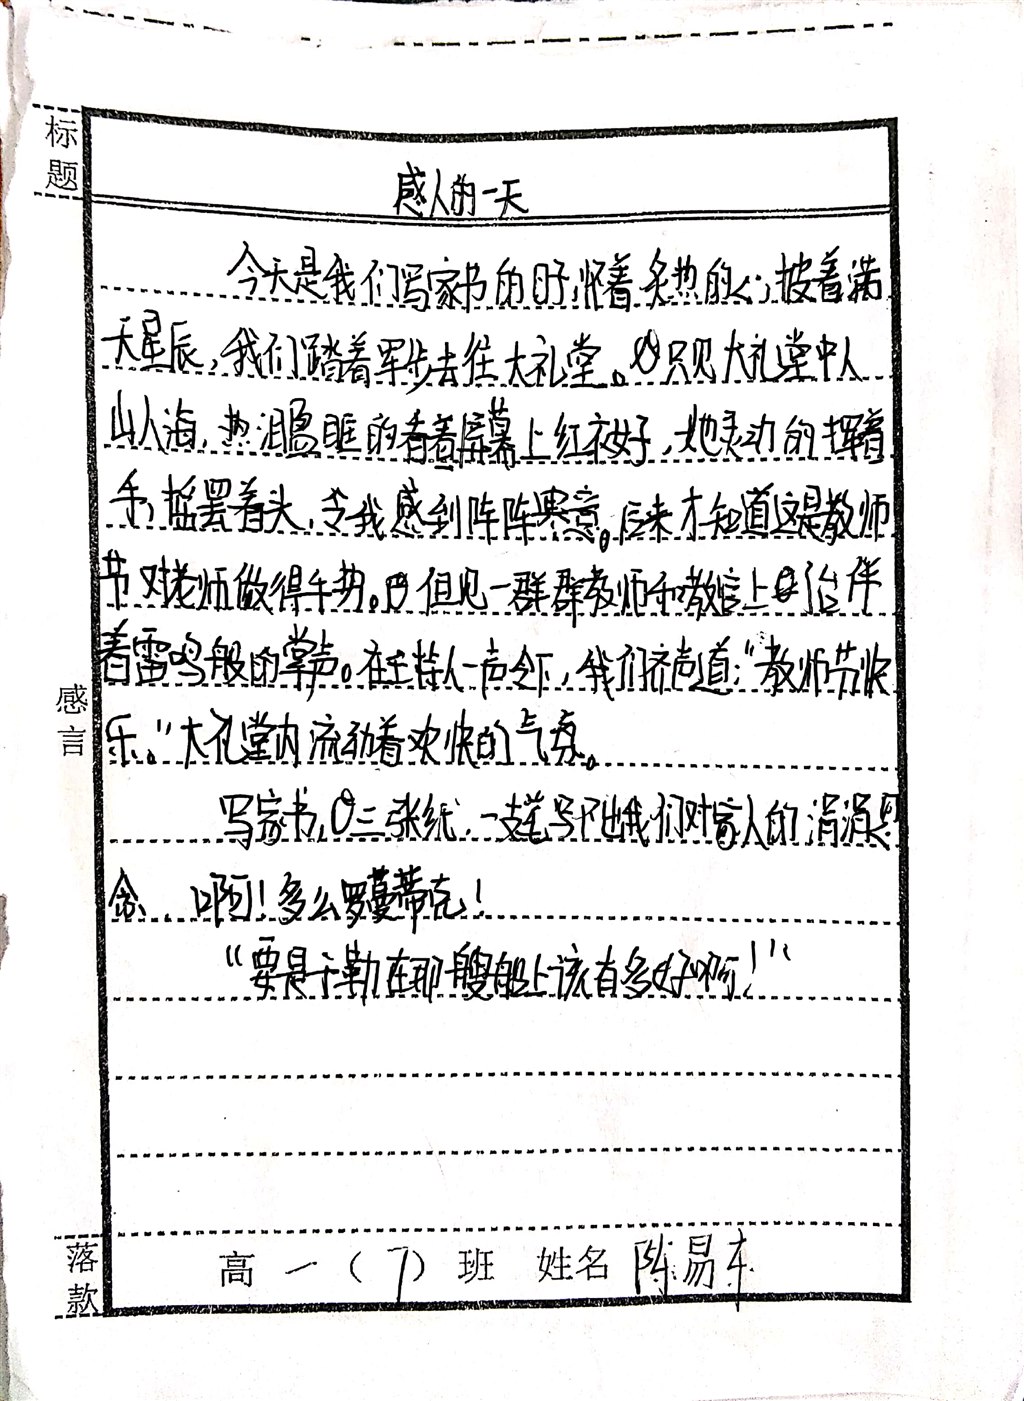 标题
感人的一天
今天是我们写家书的日子,怀着炙热的心,披着满
天星辰,我们踏着军步去往大礼堂。只见大礼堂中人
山人海,热泪盈眶的看着屏幕上红衣女子,她灵动的挥着
手,摇罢着头,令我感到阵阵寒意。后来才知道这是教师
节对老师做得手势。但见一群群教师和教官上台伴
着雷鸣般的掌声。在主持人一声令下,我们齐声道:“教师节快
乐。”大礼堂内流动着欢快的气氛。
写家书,三张纸,一支笔写下出我们对家人的涓涓思
念,啊!多么罗蔓蒂克!
“要是于勒在那艘船上该有多好啊!”
感言
落款
高一(7)班 姓名 陈易车